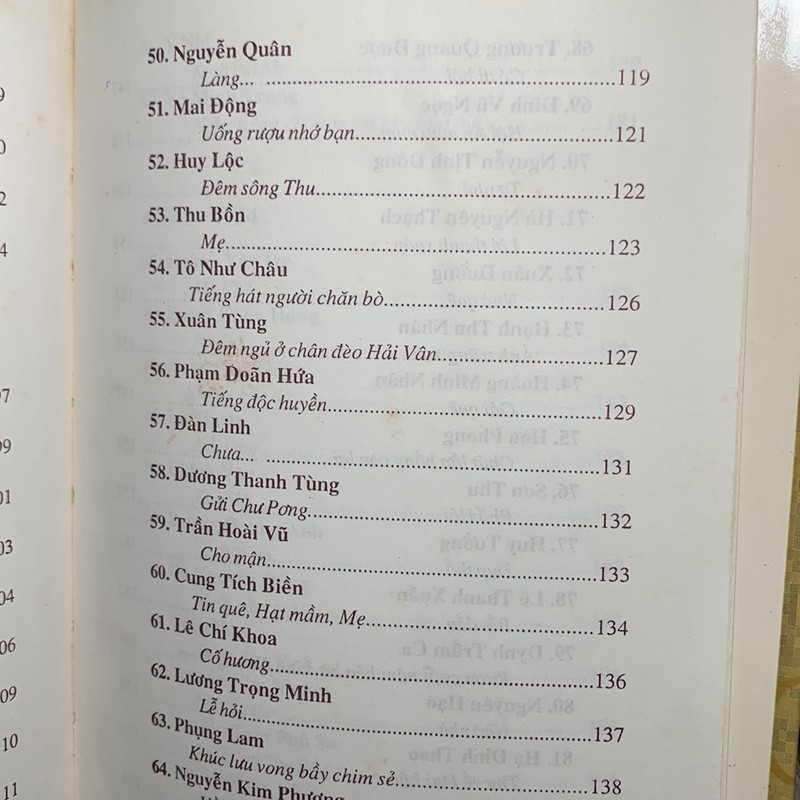 50. Nguyễn Quân
Làng... ........................ 119
51. Mai Động
Uống rượu nhớ bạn........................ 121
52. Huy Lộc
Đêm sông Thu........................ 122
53. Thu Bồn
Mẹ........................ 123
54. Tô Như Châu
Tiếng hát người chăn bò........................ 126
55. Xuân Tùng
Đêm ngủ ở chân đèo Hải Vân........................ 127
56. Phạm Doãn Hứa
Tiếng độc huyền........................ 129
57. Đàn Linh
Chưa... ........................ 131
58. Dương Thanh Tùng
Gửi Chư Pơng........................ 132
59. Trần Hoài Vũ
Cho mận........................ 133
60. Cung Tích Biền
Tin quê, Hạt mầm, Mẹ........................ 134
61. Lê Chí Khoa
Cố hương........................ 136
62. Lương Trọng Minh
Lễ hỏi........................ 137
63. Phụng Lam
Khúc lưu vong bầy chim sẻ........................ 138
64. Nguyễn Kim Phương